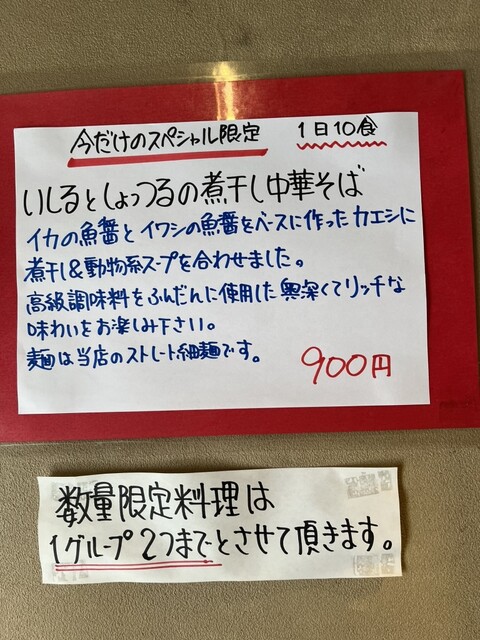 今だけのスペシャル限定 1日10食
いしるとしょっつるの煮干し中華そば
イカの魚醤とイワシの魚醤をベースに作ったカエシに
煮干し&動物系スープを合わせました。
高級調味料をふんだんに使用した奥深くてリッチな
味わいをお楽しみ下さい。
麺は当店のストレート細麺です。
900円
数量限定料理は
1グループ2つまでとさせて頂きます。